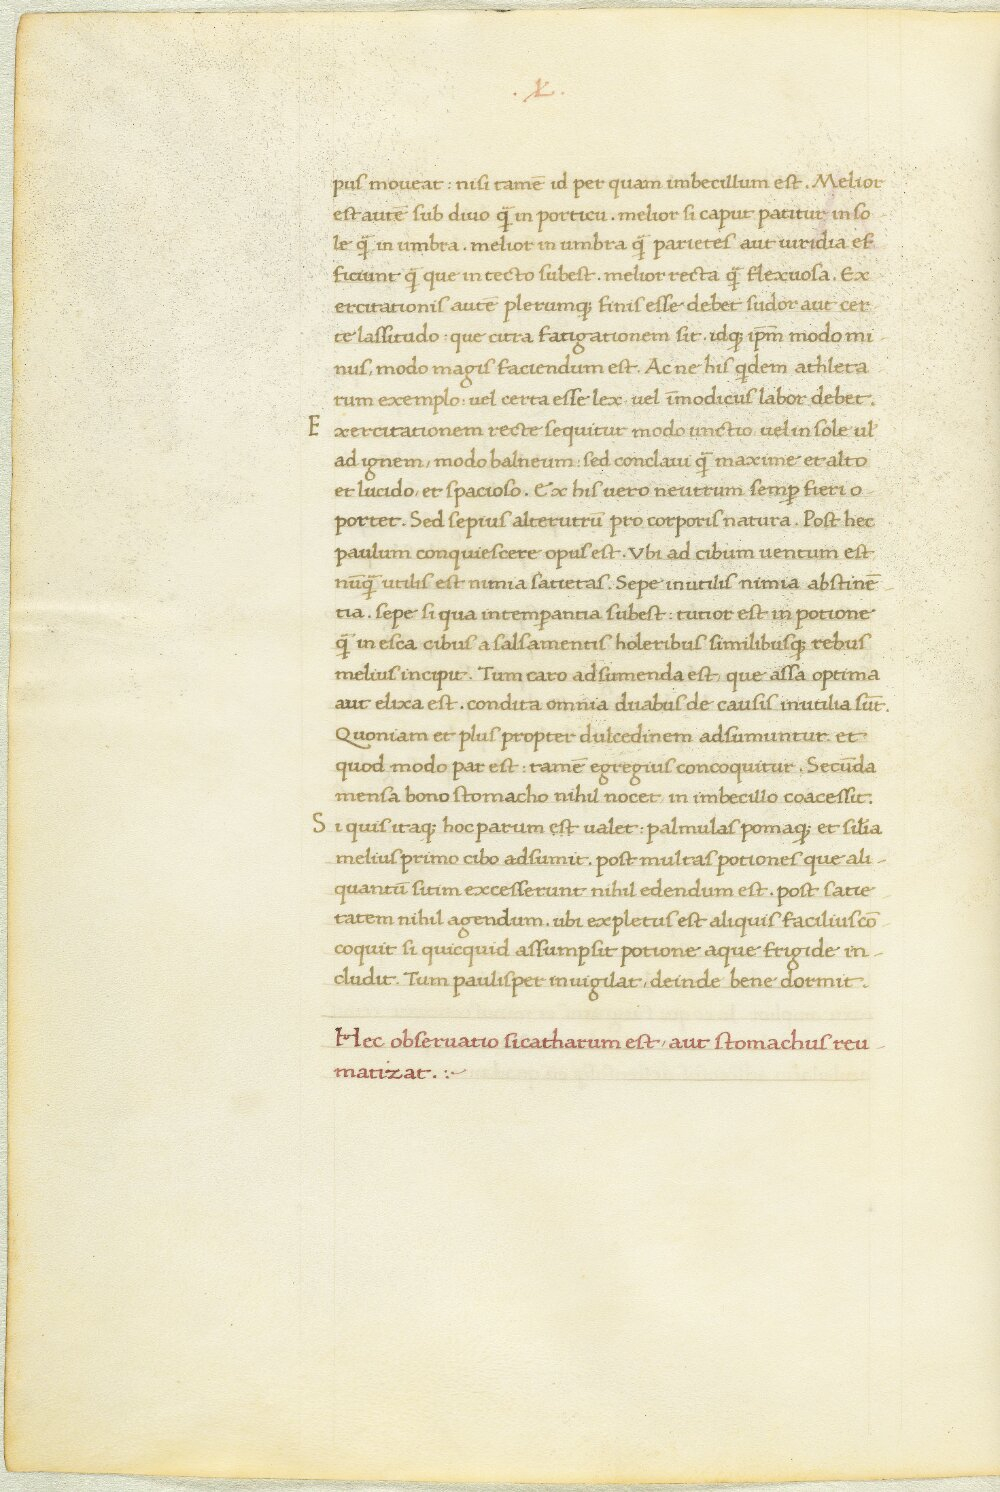 .X.
pus moueat : nisi tamē id per quam imbecillum est . Melior
est autē sub diuo q̄ in porticu . melior si caput patitur in so
le q̄ in umbra . melior in umbra q̄ parietes aut uiridia ef
ficiunt q̄ que in tecto subest . melior recta q̄ flexuosa . Ex
ercitationis autē plerumq; finis esse debet sudor aut cer
te lassitudo : que citra fatigationem sit . idq; ip̄m modo mi
nus, modo magis faciendum est . Ac ne his q̇dem athleta
rum exemplo : uel certa esse lex uel īmodicus labor debet .
E xercitationem recte sequitur modo unctio uel in sole ul̄
ad ignem, modo balneum : sed conclaui q̄ maxime et alto
et lucido, et spacioso . Ex his uero neutrum semꝑ fieri o
portet . Sed sepius alterutrū pro corporis natura . Post hec
paulum conquiescere opus est . Vbi ad cibum uentum est
nūq̄ utilis est nimia satietas . Sepe inutilis nimia abstinē
tia . sepe si qua intemꝑantia subest : tutior est in potione
q̄ in esca cibus a salsamentis holeribus similibusq; rebus
melius incipit . Tum caro adsumenda est, que assa optima
aut elixa est . condita omnia duabus de causis inutilia sūt .
Quoniam et plus propter dulcedinem adsumuntur . et
quod modo par est : tamē egregius concoquitur . Secūda
mensa bono stomacho nihil nocet in imbecillo coacessit .
S i quis itaq; hoc parum est ualet : palmulas pomaq; et sil̄ia
melius primo cibo adsumit . post multas potiones que ali-
quantū sitim excesserunt nihil edendum est . post satie
tatem nihil agendum . ubi expletus est aliquis facilius cō
coquit si quicquid assumpsit potione aque frigide in-
cludit . Tum paulisper inuigilat, deinde bene dormit .
Hec obseruatio si catharum est, aut stomachus reu
matizat . :~